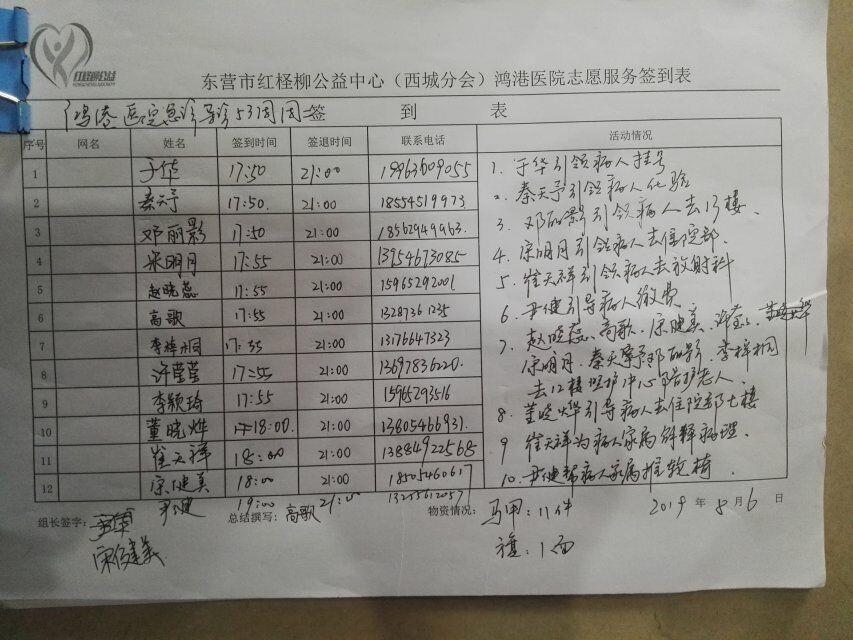 红柽柳公益
东营市红柽柳公益中心（西城分会）鸿港医院志愿服务签到表
鸿港医院急诊导诊53周周签 到 表
序号 网名 姓名 签到时间 签退时间 联系电话 活动情况
1 于华 17:50 21:00 19963609055
2 秦天予 17:50. 21:00 18554519973
3 邓丽影 17:50 21:00 18562949963.
4 宋明月 17:55 21:00 13954673085
5 赵晓蕊 17:55 21:00 15965292001
6 高歌 17:55 21:00 13287361235
7 李梓桐 17:55 21:00 13176647323
8 许莹莹 17:55 21:00 13697836220.
9 李颖琦 17:55 21:00 15965293516
10 董晓烨 18:00. 21:00 13805466931.
11 崔天祥 18:00 21:00 13884922568
12 宋健美 18:00 21:00 18505460617
尹健 19:00 21:00 1325612057
1. 于华引领病人挂号
2. 秦天予引领病人化验
3. 邓丽影引领病人去13楼、
4. 宋明月引领病人去住院部、
5. 崔天祥引领病人去放射科
6. 尹健引导病人缴费
7. 赵晓蕊、高歌、宋健美、许莹莹、董晓烨
宋明月、秦天予、邓丽影、李梓桐
去12楼照护中心陪护老人、
8. 董晓烨引导病人去住院部七楼
9 崔天祥为病人家属解释病理、
10. 尹健帮病人家属推轮椅、
组长签字： 总结撰写：高歌 物资情况： 马甲：11件 2019 年 8 月 6 日
宋健美 旗：1面